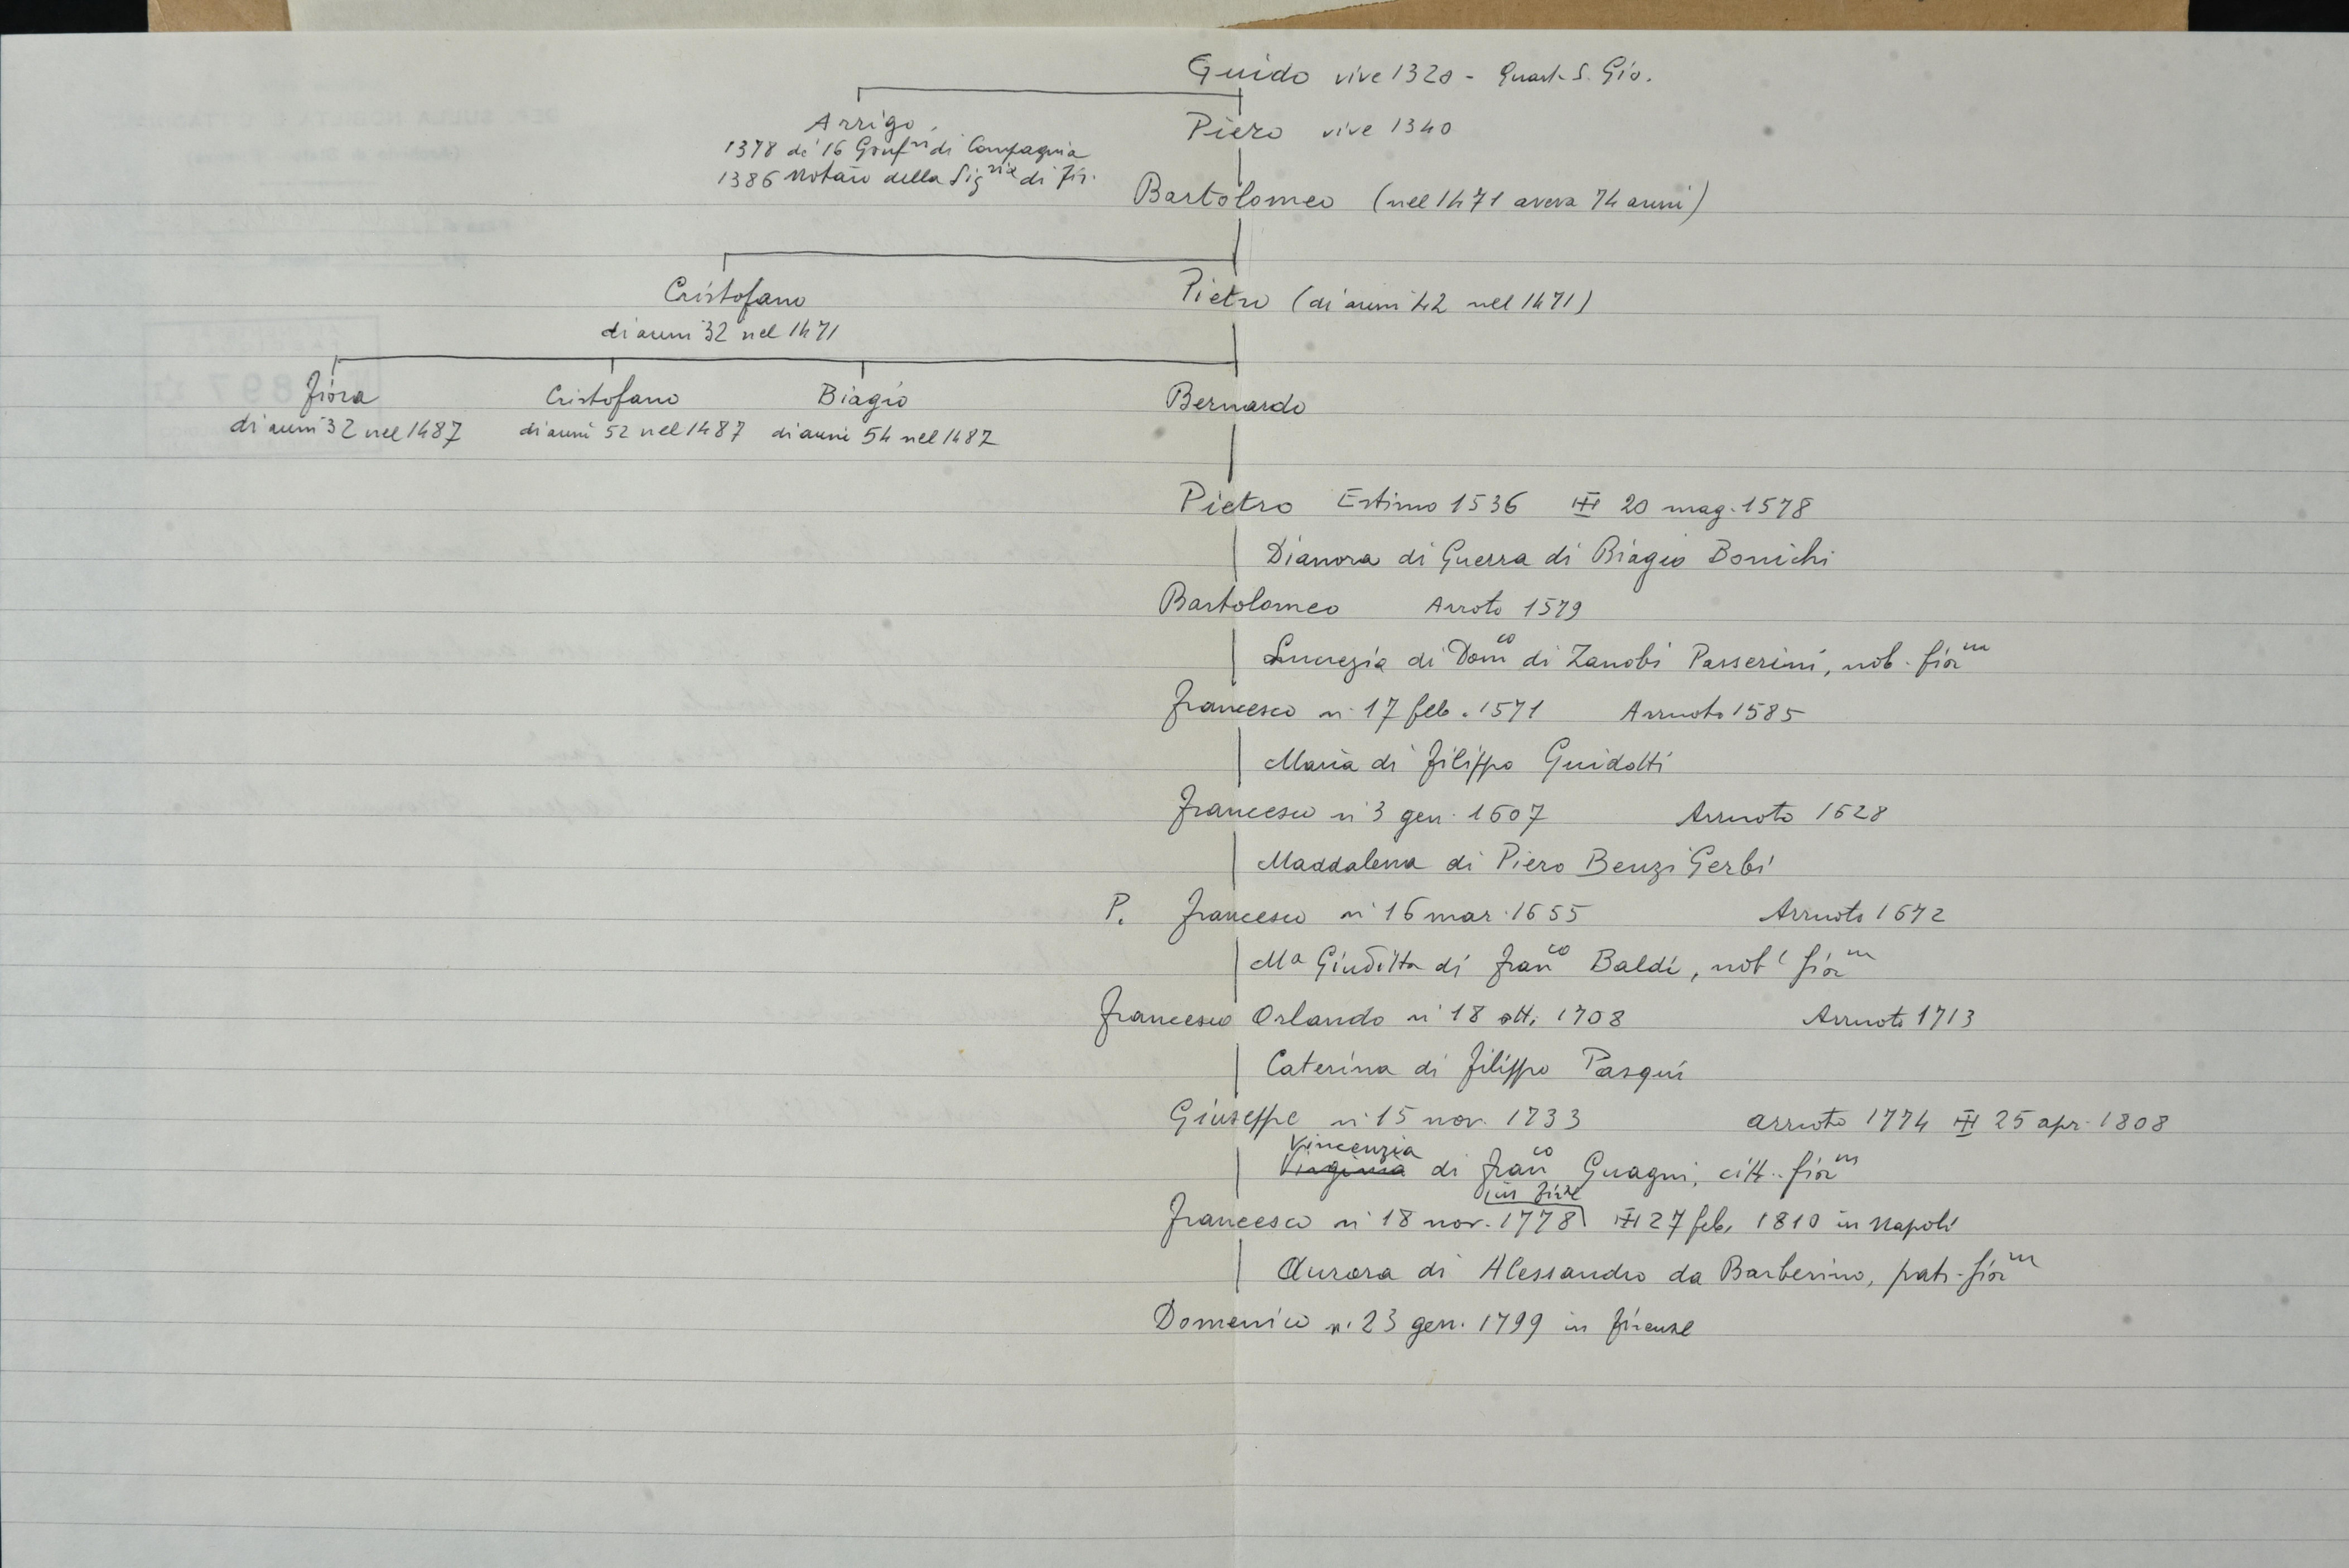 Guido vive 1320 - Quart. S. Gio.
Arrigo
1378 de' 16 Gonf.ri di Compagnia
1386 Notaio della Sig.ria di Fir.
Piero vive 1340
Bartolomeo (nel 1471 aveva 74 anni)
Cristofano
di anni 32 nel 1471
Pietro (di anni 42 nel 1471)
Fiora
di anni 32 nel 1487
Cristofano
di anni 52 nel 1487
Biagio
di anni 54 nel 1487
Bernardo
Pietro Estimo 1536 20 mag. 1578
Dianora di Guerra di Biagio Bonichi
Bartolomeo Arroto 1579
Lucrezia di Dom.co di Zanobi Passerini, nob. fior.na
Francesco n. 17 feb. 1571 Arruoto 1585
Maria di Filippo Guidotti
Francesco n. 3 gen. 1607 Arruoto 1628
Maddalena di Piero Benzi Gerbi
P. Francesco n. 16 mar. 1655 Arruoto 1672
M.a Giuditta di Fran.co Baldi, nob. fior.na
Francesco Orlando n. 18 ott. 1708 Arruoto 1713
Caterina di Filippo Pasqui
Giuseppe n. 15 nov. 1733 arruoto 1774 25 apr. 1808
Vincenzia
Virginia di Fran.co Guagni, citt. fior.na
in Fir.ze
Francesco n. 18 nov. 1778 27 feb. 1810 in Napoli
Aurora di Alessandro da Barberino, patr. fior.na
Domenico n. 23 gen. 1799 in Firenze